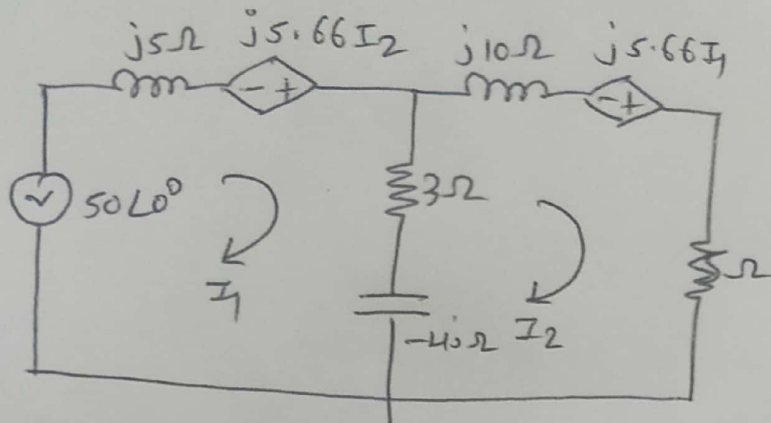 j5Ω j5.66I₂ j10Ω j5.66I₁
- + - +
50∠0°
3Ω
Ω
I₁
-4jΩ I₂